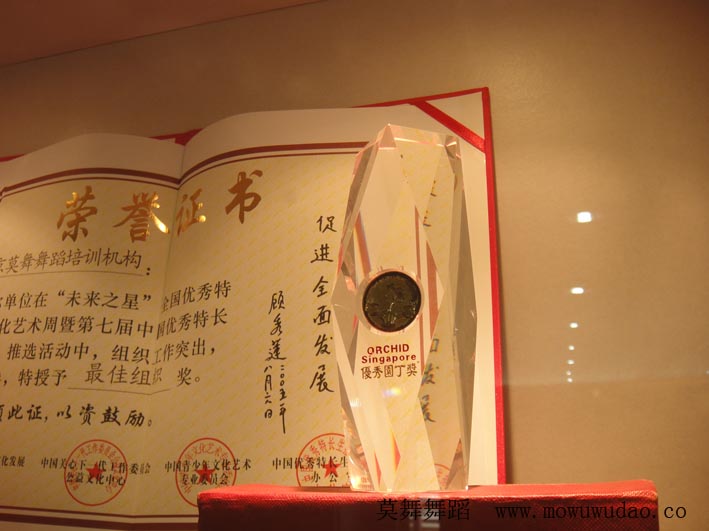 荣誉证书
京莫舞舞蹈培训机构:
单位在“未来之星”全国优秀特
化艺术周暨第七届中国优秀特长
推选活动中,组织工作突出,
特授予 最佳组织 奖。
此证,以资鼓励。
促进全面发展
顾秀莲
二00五年
八月六日
中国关心下一代工作委员会
公益文化中心
中国青少年文化艺术
专业委员会
中国优秀特长生
办公
ORCHID
Singapore
優秀園丁獎
莫舞舞蹈 www.mowuwudao.co